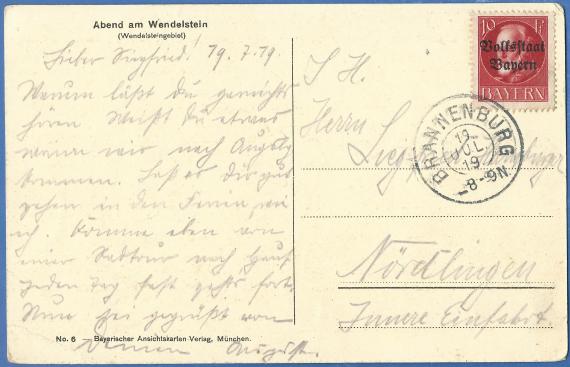 Abend am Wendelstein
(Wendelsteingebiet)
Lieber Siegfried! 19.7.19.
Warum läßt du garnichts
hören. Weißt du etwas
wann wir nach Augsbg
kommen. Laß es dir gut
gehen in den Ferien wie
ich. Komme eben von
einer Radtour nach Haus
jeden Tag fast gehts fort.
Nun sei gegrüßt von
Deinem August.
No. 6 — Bayerischer Ansichtskarten-Verlag, München.
10 Pf
Volksstaat
Bayern
BAYERN
BRANNENBURG
19
JUL.
19
8-9N.
S. H.
Herrn
Nördlingen
Innere Einfahrt